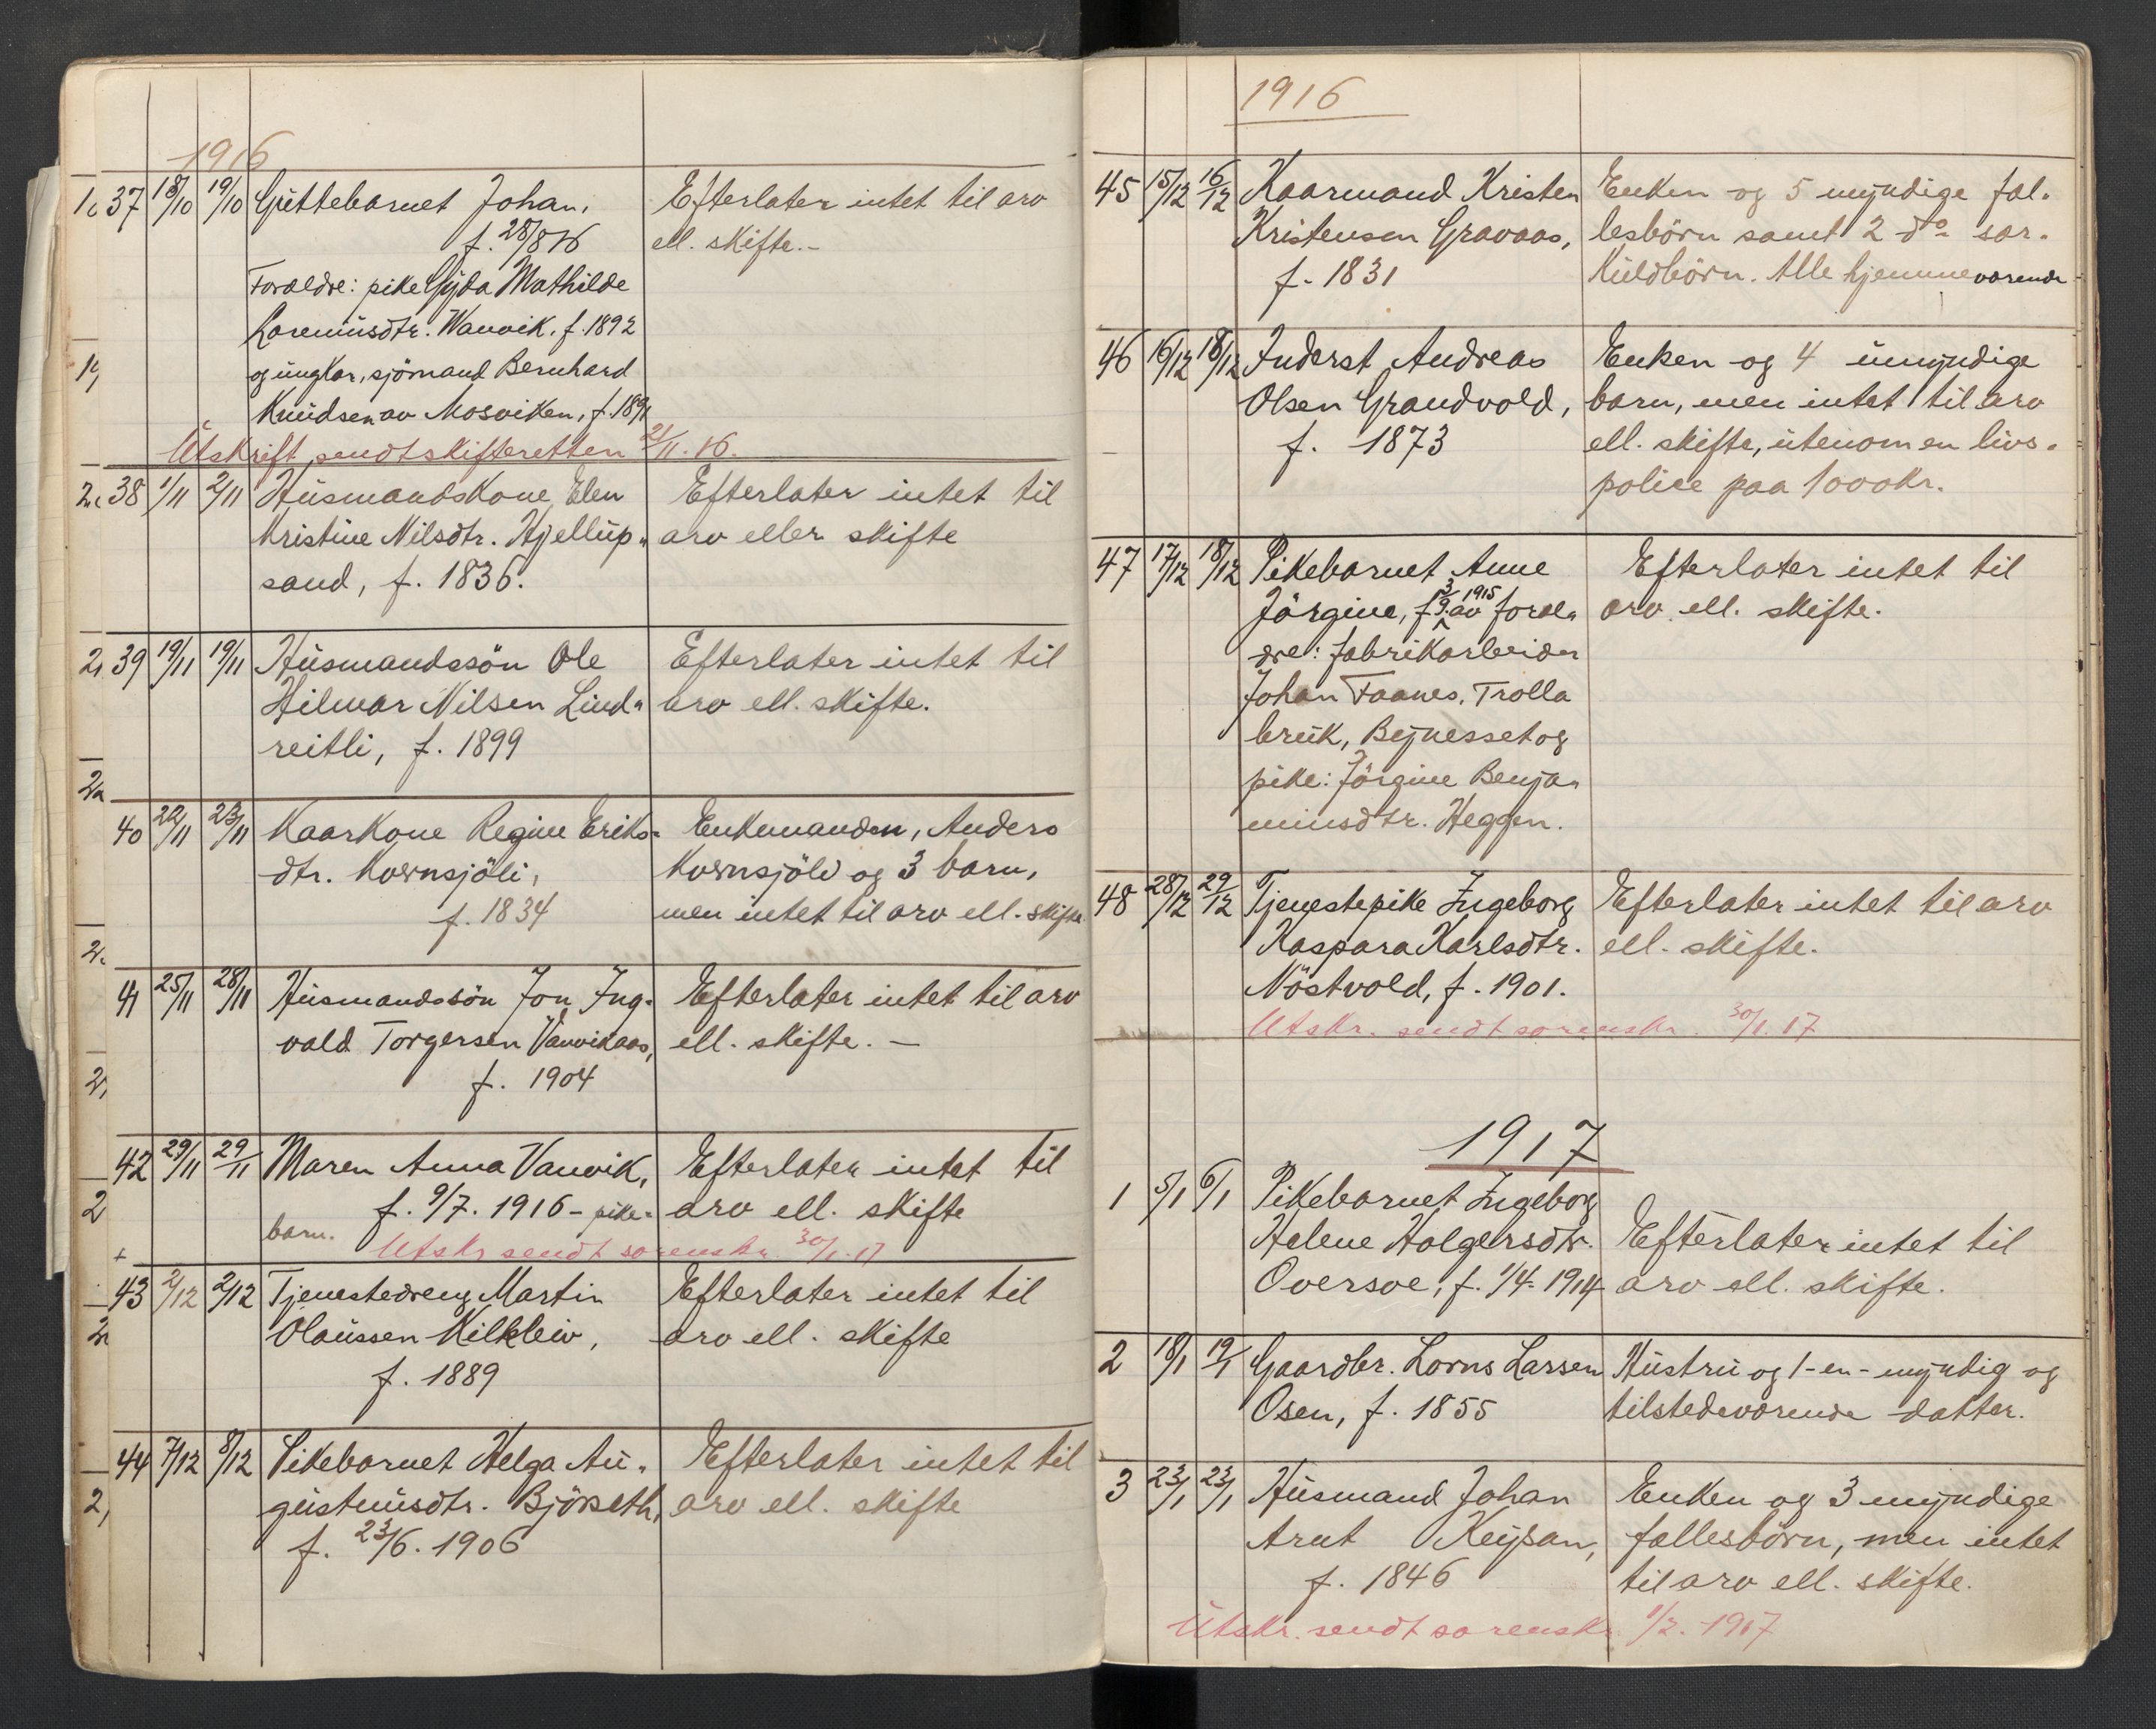 1916
37 18/10 19/10 Guttebarnet Johan, Efterlater intet til arv
f. 28/8 16 ell. skifte.-
Forældre: pike Gyda Mathilde
Lorentsdtr. Wanvik. f. 1892
og ungkar, sjömand Bernhard
Knudsen av Mosviken, f. 1891
Utskrift sendt skifteretten 21/11. 16.
38 1/11 2/11 Husmandskone Elen Efterlater intet til
Kristine Nilsdtr. Hjellup- arv eller skifte
sand, f. 1836.
39 19/11 19/11 Husmandssön Ole Efterlater intet til
Hilmar Nilsen Lind- arv ell. skifte.
reitli, f. 1899
40 22/11 23/11 Kaarkone Regine Eriks- Enkemanden, Anders
dtr. Kvernsjöli, Kvernsjöli og 3 barn,
f. 1834 men intet til arv ell. skifte
41 25/11 28/11 Husmandssön Jon Ing- Efterlater intet til arv
vald Torgersen Vanvikaas, ell. skifte. -
f. 1904
42 29/11 29/11 Maren Anna Vanvik, Efterlater intet til
f. 9/7. 1916 - pike- arv ell. skifte
barn.
Utskr sendt sorenskr. 30/1. 17
43 2/12 2/12 Tjenestedreng Martin Efterlater intet til
Olaussen Kilkleiv, arv ell. skifte
f. 1889
44 7/12 8/12 Pikebarnet Helga Au- Efterlater intet til
gustinusdtr. Björseth, arv ell. skifte
f. 23/6. 1906
1916
45 15/12 16/12 Kaarmand Kristen Enken og 5 myndige fæl-
Kristensen Gravaas, lesbörn samt 2 do sær-
f. 1831 kuldbörn. Alle hjemmeværende
46 16/12 18/12 Inderst Andreas Enken og 4 umyndige
Olsen Grandvold, barn, men intet til arv
f. 1873 ell. skifte, utenom en livs-
police paa 1000 kr.
47 17/12 18/12 Pikebarnet Anne Efterlater intet til
Jörgine, f. 3/9 1915 av foræl- arv ell. skifte.
dre: fabrikarbeider
Johan Faanes, Trolla
bruk, Bynesset og
pike: Jörgine Benja-
minsdtr. Heggen.
48 28/12 29/12 Tjenestepike Ingeborg Efterlater intet til arv
Kaspara Karlsdtr. ell. skifte.
Nöstvold, f. 1901.
Utskr. sendt sorenskr. 30/1. 17
1917
1 5/1 6/1 Pikebarnet Ingeborg
Helene Holgersdtr. Efterlater intet til
Oversve, f. 1/4. 1914 arv ell. skifte.
2 18/1 19/1 Gaardbr. Lorns Larsen Hustru og 1-en-myndig og
Osen, f. 1855 tilstedeværende datter.
3 23/1 23/1 Husmand Johan Enken og 3 myndige
Arnt Keysan, fællesbörn, men intet
f. 1846 til arv ell. skifte.
Utskr. sendt sorenskr. 1/2. 1917